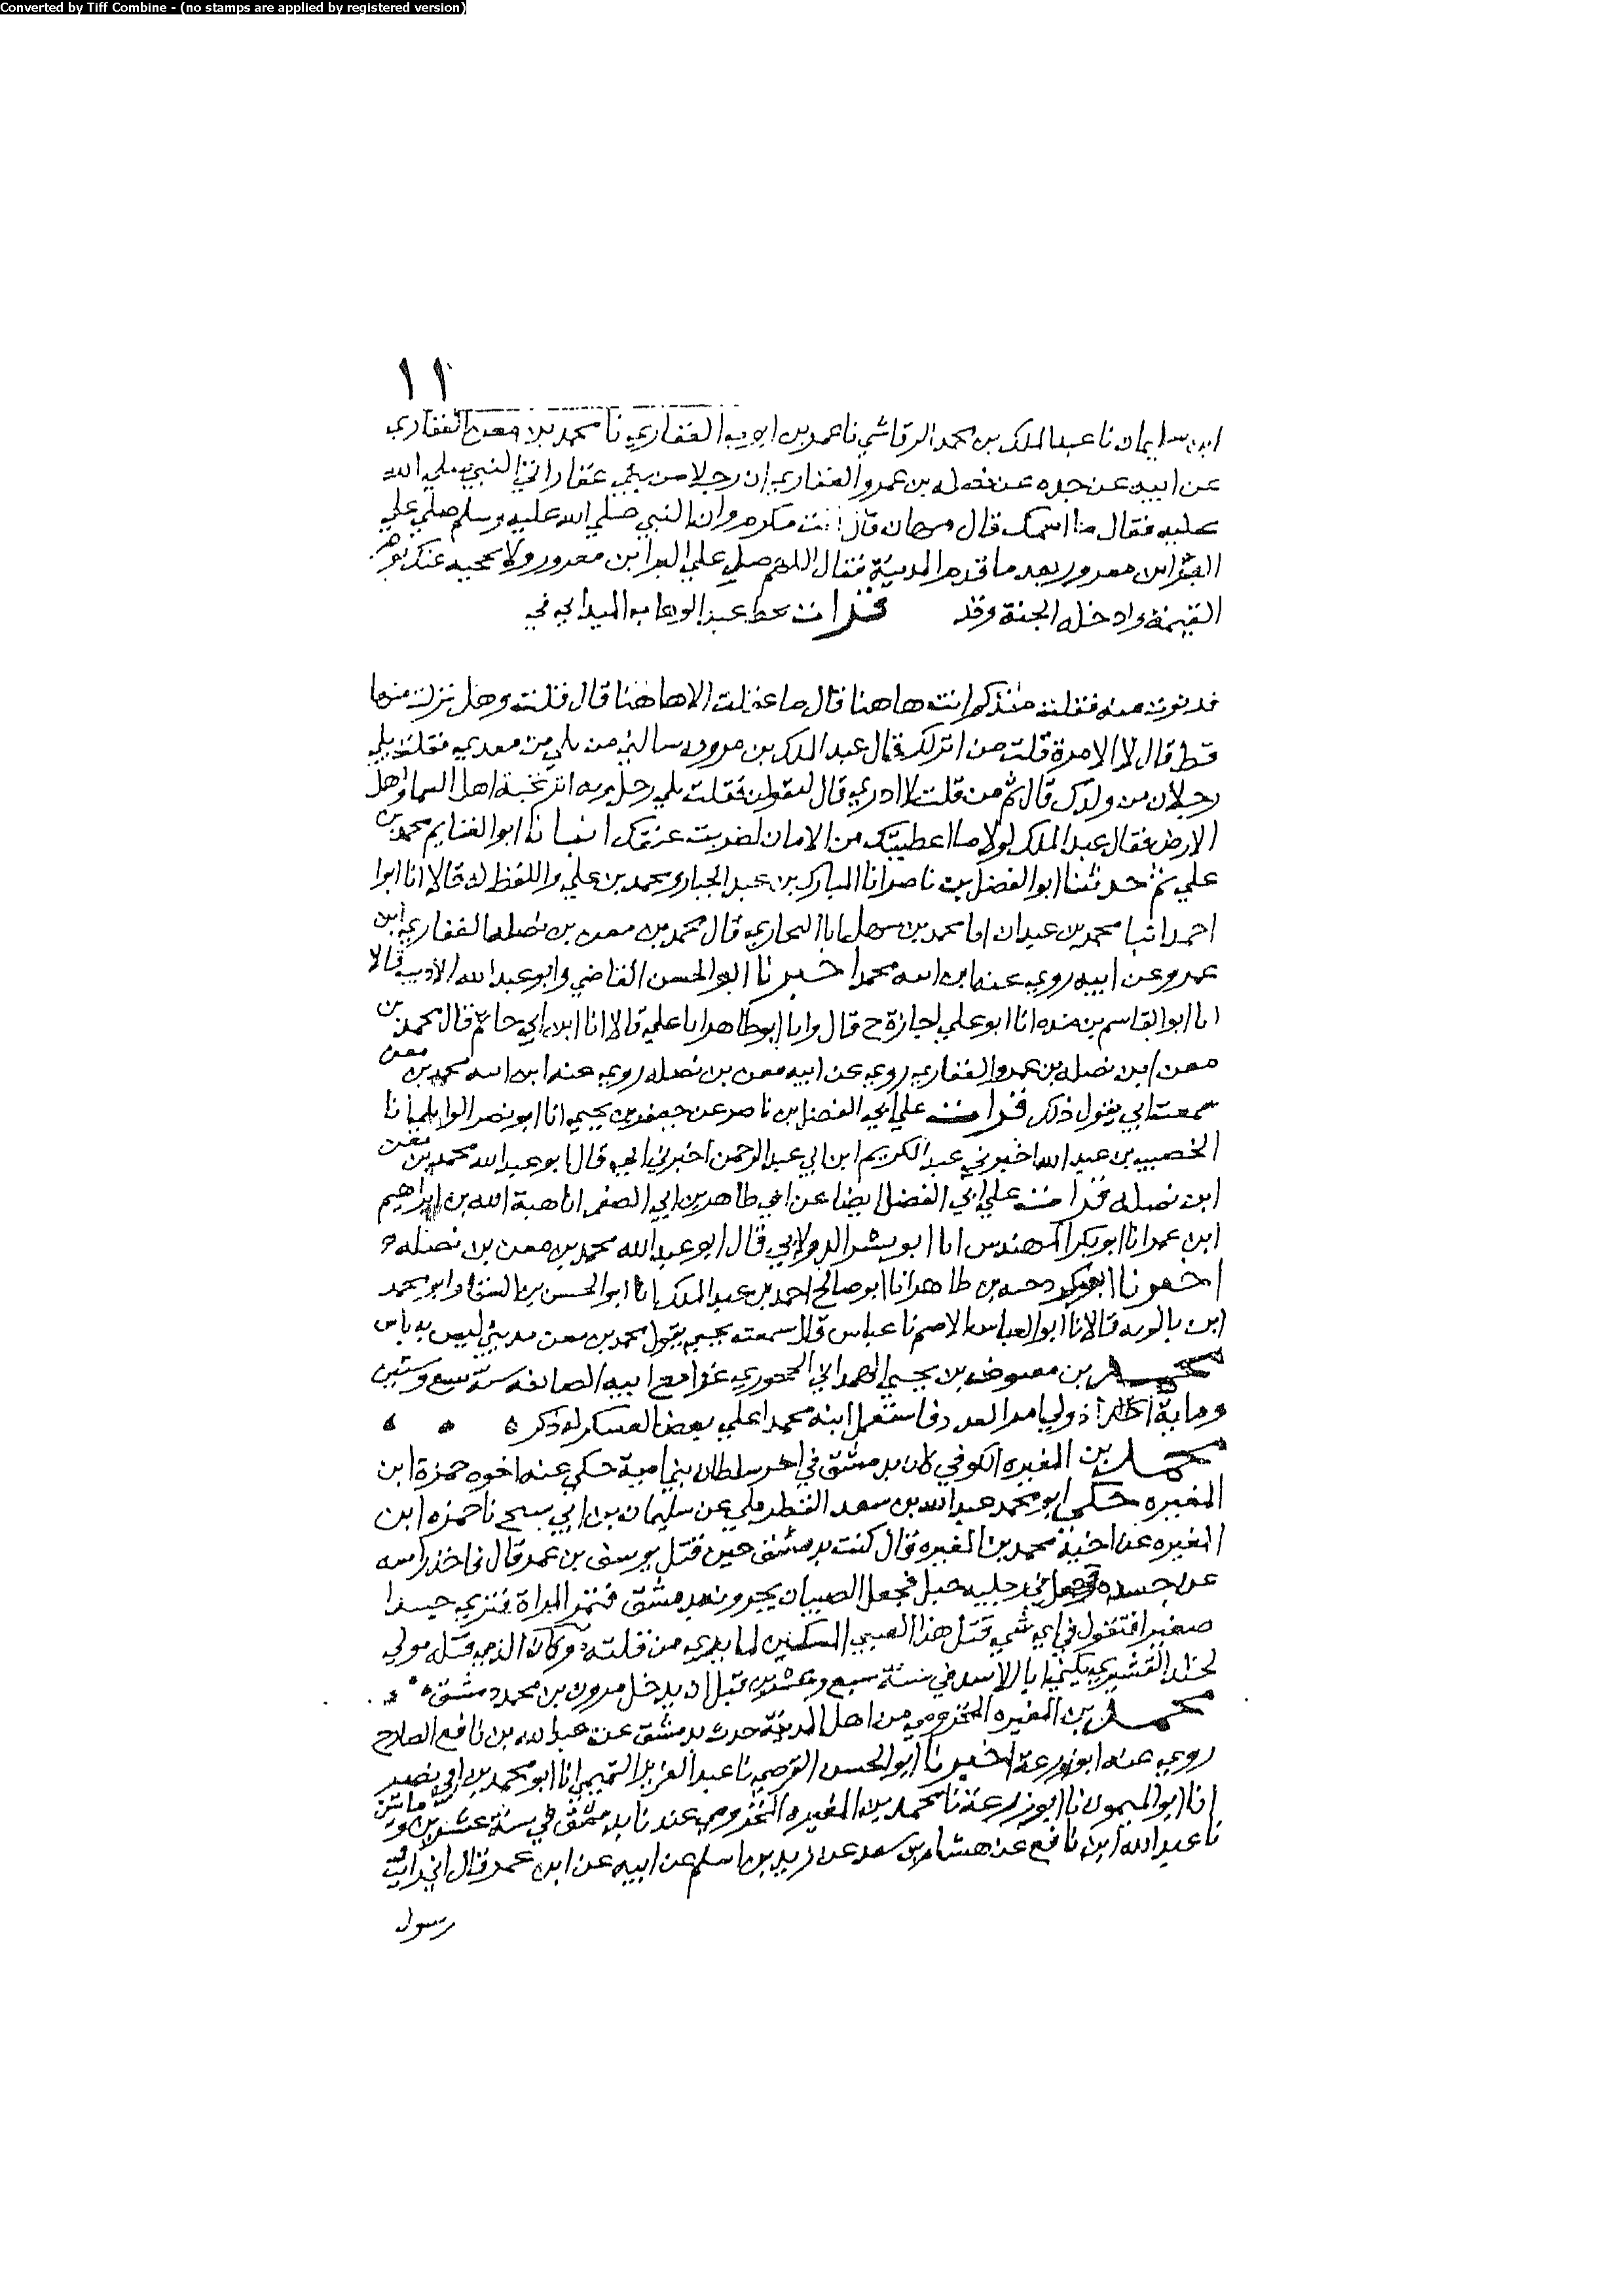 Converted by Tiff Combine - (no stamps are applied by registered version)
١١
ابن سليمان نا عبد الملك بن محمد الرقاشي نا عمر بن ايوب الغفاري نا محمد بن معن الغفاري
عن ابيه عن جده عن نضله بن عمرو الغفاري ان رجلا من بني غفار اتي النبي صلي الله
عليه فقال ما اسمك قال مهان قال انت مكرم وان النبي صلي الله عليه وسلم صلي علي
البرا بن معرور بعد ما قدم المدينة فقال اللهم صلي علي البرا بن معرور ولا تحجبه عنك يوم
القيمة وادخله الجنة وقد قرات بخط عبد الوهاب الميداني في
فدنوت منه فقلت منذكم انت هاهنا قال ما عقلت الا هاهنا قال قلت وهل نزلت منها
قط قال لا الا مرة قلت من انزلك قال عبد الملك بن مروان سالني من يلي من بعدي فقلت يلي
رجلان من ولدك قال ثم من قلت لا ادري قال لتقولن فقلت يلي رجل يرد اثر نخبة اهل السما واهل
الارض فقال عبد الملك لولا ما اعطيتك من الامان لضربت عنقك انبانا ابو الغنايم محمد بن
علي ثم حدثنا ابو الفضل بن ناصر انا المبارك بن عبد الجبار ومحمد بن علي واللفظ له قالا انا ابوا
احمد انبا محمد بن عبدان انا محمد بن سهل انا البخاري قال محمد بن معن بن نضله الغفاري ابن
عمرو عن ابيه روي عنه ابن ابنه محمد اخبرنا ابو الحسن القاضي وابو عبد الله الاديب قالا
انا ابو القاسم بن منده انا ابو علي اجازة ح قال وانا ابو طاهر انا علي قالا انا ابن ابي حاتم قال محمد بن
معن ابن نضله بن عمرو الغفاري روي عن ابيه معن بن نضله روي عنه ابن ابنه محمد بن معن
سمعت ابي يقول ذلك قرات علي ابي الفضل بن ناصر عن جعفر بن يحيي انا ابو نصر الوايلي انا
الخصيب بن عبد الله اخبرني عبد الكريم ابن ابي عبد الرحمن اخبرني ابي قال ابو عبد الله محمد بن معن
ابن نضله قرات علي ابي الفضل ايضا عن ابي طاهر بن ابي الصقر انا هبة الله بن ابراهيم
ابن عمر انا ابو بكر المهندس انا ابو بشر الدولابي قال ابو عبد الله محمد بن معن بن نضله
اخبرنا ابو بكر وجيه بن طاهر انا ابو صالح احمد بن عبد الملك انا ابو الحسن بن السقا وابو محمد
ابن بالويه قالا انا ابو العباس الاصم نا عباس قال سمعت يحيي يقول محمد بن معن مديني ليس به باس
محمد بن معيوف بن يحيي الهمداني الحجوري غزا مع ابيه الصايفه سنة سبع وستين
وماية ولي امر العدو فاستعمل ابنه محمدا علي بعض العسكر له ذكر
محمد بن المغيره الكوفي كان بدمشق في اخر سلطان بني امية حكي عنه اخوه حمزة ابن
المغيره حكي ابو محمد عبد الله بن سعد القطربلي عن سليمان بن ابي شيخ نا حمزه ابن
المغيره عن اخيه محمد بن المغيره قال كنت بدمشق حين قتل يوسف بن عمر قال فاخذ راسه
عن جسده وجعل في رجليه حبل فجعل الصبيان يجرونه بدمشق فتمر المراة فتري جسدا
صغيرا فتقول في اي شي قتل هذا الصبي المسكين لما يري من قلته وكان الذي قتله مولي
لخالد القشيري يكني ابا الاسد في سنة سبع وعشرين قبل ان يدخل مرون بن محمد دمشق
محمد بن المغيره المخزومي من اهل المدينة حدث بدمشق عن عبد الله بن نافع الصايغ
روي عنه ابو زرعة اخبرنا ابو الحسن الفرضي نا عبد العزيز التميمي انا ابو محمد بن ابي نصر
انا ابو الميمون نا ابو زرعة نا محمد بن المغيره المخزومي عندنا بدمشق في سنة عشرين ومائتين
نا عبد الله ابن نافع عن هشام بن سعد عن زيد بن اسلم عن ابيه عن ابن عمر قال اني رايت
رسول